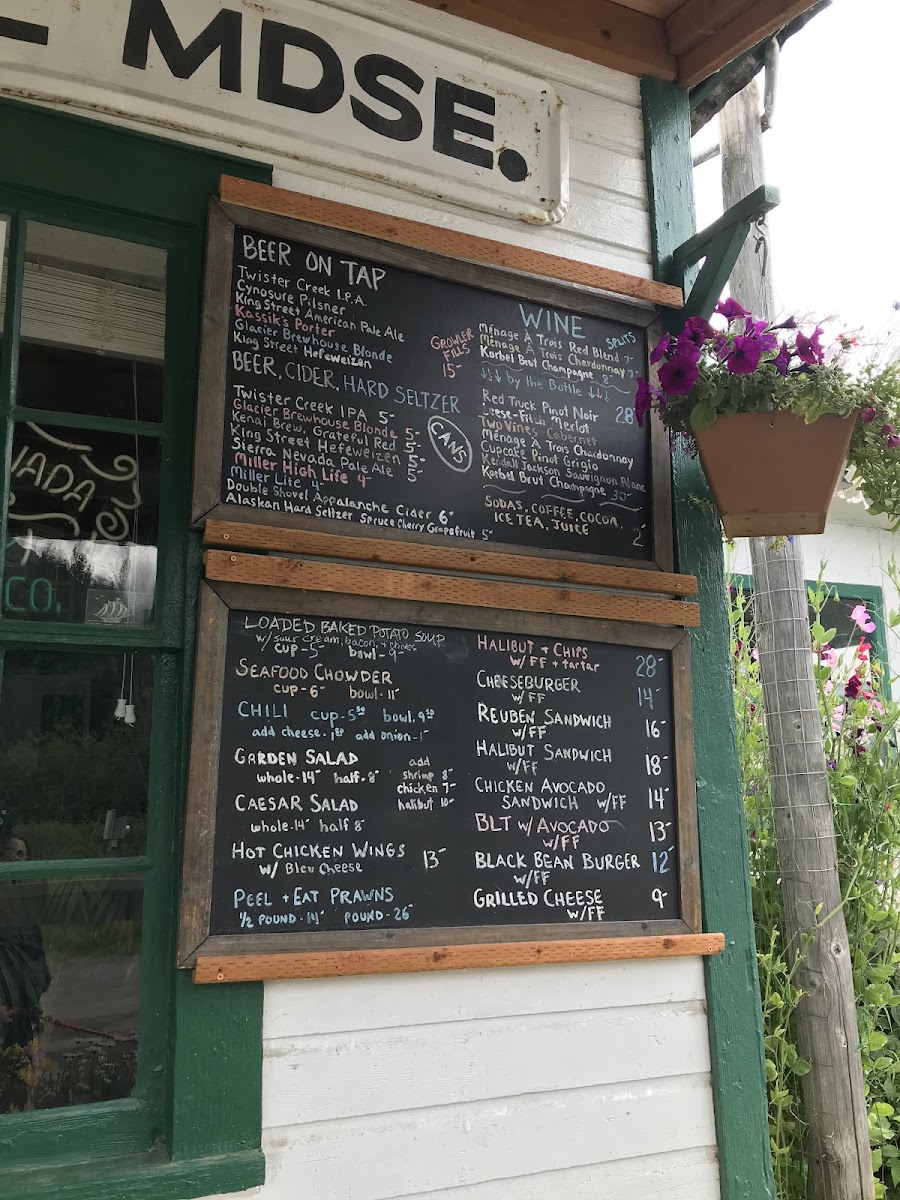 MDSE.
BEER ON TAP
Twister Creek I.P.A.
Cynosure Pilsner
King Street American Pale Ale
Kassik's Porter
Glacier Brewhouse Blonde
King Street Hefeweizen
GROWLER
FILLS
15-
BEER, CIDER, HARD SELTZER
Twister Creek IPA 5-
Glacier Brewhouse Blonde 5-
Kenai Brew. Grateful Red 5-
King Street Hefeweizen 5-
Sierra Nevada Pale Ale 5-
Miller High Life 4-
Miller Lite 4-
Double Shovel Appalanche Cider 6-
Alaskan Hard Seltzer Spruce Cherry Grapefruit 5-
CANS
WINE
SPLITS
Ménage À Trois Red Blend 7-
Ménage À Trois Chardonnay 7-
Korbel Brut Champagne 8-
↓↓↓ by the Bottle ↓↓↓
Red Truck Pinot Noir 28-
Merlot
Two Vines Cabernet
Ménage À Trois Chardonnay
Cupcake Pinot Grigio
Kendall Jackson Sauvignon Blanc
Korbel Brut Champagne 30-
SODAS, COFFEE, COCOA,
ICE TEA, JUICE 2-
LOADED BAKED POTATO SOUP
w/ sour cream, bacon, + chives
cup-5- bowl-9-
SEAFOOD CHOWDER
cup-6- bowl-11-
CHILI cup-5.50 bowl-9.50
add cheese-1.50 add onion-1-
GARDEN SALAD
whole-14- half-8-
add
shrimp 8-
chicken 7-
halibut 10-
CAESAR SALAD
whole-14- half 8-
HOT CHICKEN WINGS 13-
w/ Bleu Cheese
PEEL + EAT PRAWNS
½ POUND-14- POUND-26-
HALIBUT + CHIPS 28-
w/ FF + tartar
CHEESEBURGER 14-
w/FF
REUBEN SANDWICH 16-
w/FF
HALIBUT SANDWICH 18-
w/FF
CHICKEN AVOCADO 14-
SANDWICH w/FF
BLT w/ AVOCADO 13-
w/FF
BLACK BEAN BURGER 12-
w/FF
GRILLED CHEESE 9-
w/FF
CO.